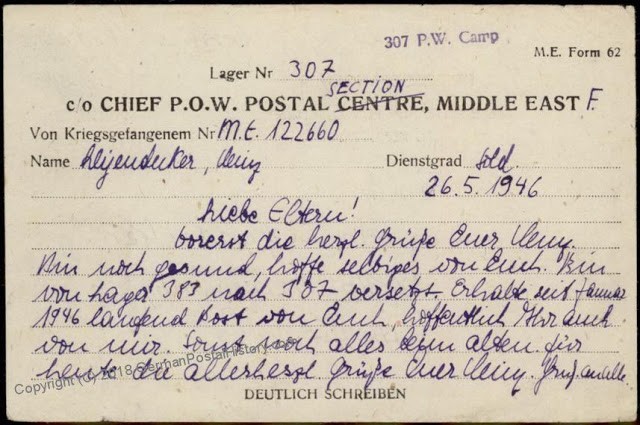 307 P.W. Camp
M.E. Form 62
Lager Nr 307
SECTION
c/o CHIEF P.O.W. POSTAL CENTRE, MIDDLE EAST F.
Von Kriegsgefangenem Nr M.E. 122660
Name Leyendecker, Heinz Dienstgrad Sold.
26.5.1946
Liebe Eltern!
vorerst die herzl. Grüße Euer Heinz.
Bin noch gesund, hoffe selbiges von Euch. Bin
von Lager 383 nach 307 versetzt. Erhalte seit Januar
1946 laufend Post von Euch, hoffentlich Ihr auch
von mir. Sonst noch alles beim alten. Für
heute die allerherzl Grüße Euer Heinz. Gruß an alle.
DEUTLICH SCHREIBEN
Copyright (C) 2018 StephanPostalHistory.com